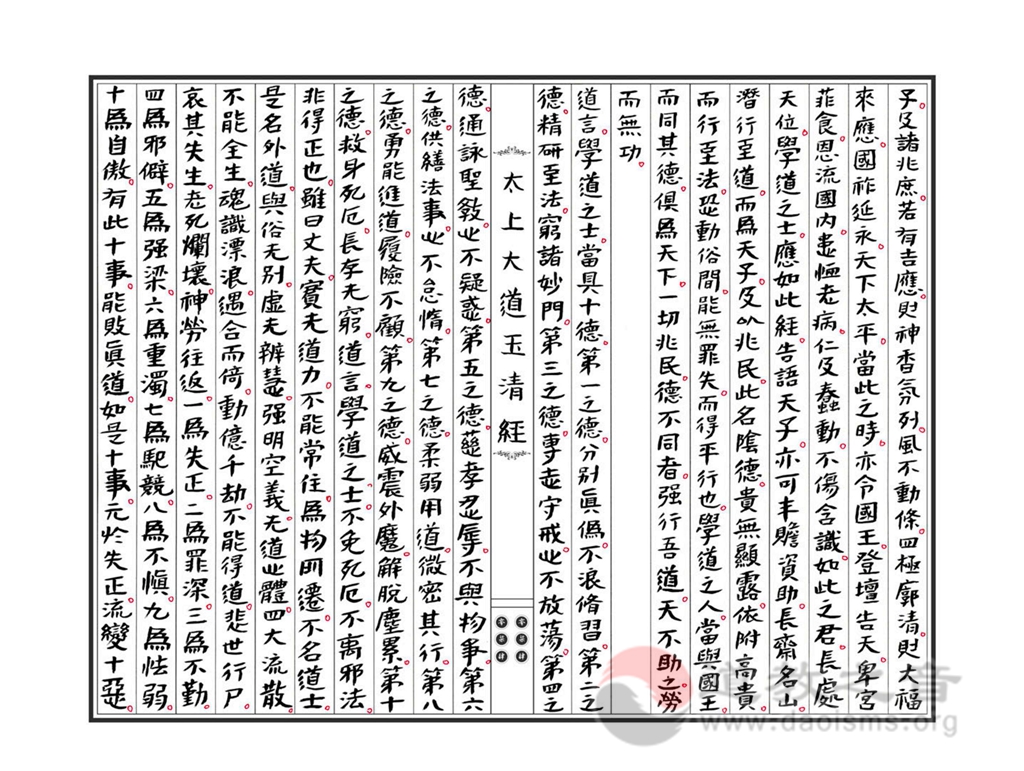 子及諸兆庶若有吉應則神香氛列風不動條四極廓清則大福
來應國祚延永天下太平當此之時亦令國王登壇告天卑宮
菲食恩流國內患恤老病仁及蠢動不傷含識如此之君長處
天位學道之士應如此經告語天子亦可丰贍資助長齋名山
潛行至道而為天子及以兆民此名陰德貴無顯露依附高貴
而行至法恐動俗間能無罪失而得平行也學道之人當與國王
而同其德俱為天下一切兆民德不同者强行吾道天不助之勞
而無功
道言學道之士當具十德第一之德分別真偽不浪脩習第二之
德精研至法窮諸妙門第三之德專志守戒心不放蕩第四之
太上大道玉清經
德通詠聖教心不疑惑第五之德慈孝忍辱不與物事第六
之德供繕法事心不怠惰第七之德柔弱用道微密其行第八
之德勇能進道履險不顧第九之德威震外魔解脫塵累第十
之德救身死厄長存无窮道言學道之士不免死厄不離邪法
非得正也雖曰丈夫實无道力不能常住為物所遷不名道士
是名外道與俗无別虛无辨慧强明空義无道心體四大流散
不能全生魂識漂浪遇合而倚動億千劫不能得道悲世行尸
哀其失生志死爛壞神勞往返一為失正二為罪深三為不勤
四為邪僻五為强梁六為重濁七為馳競八為不慎九為怯弱
十為自傲有此十事能敗真道如是十事元於失正流變十惡
零零
零零
肆肆
道教之音
www.daoisms.org